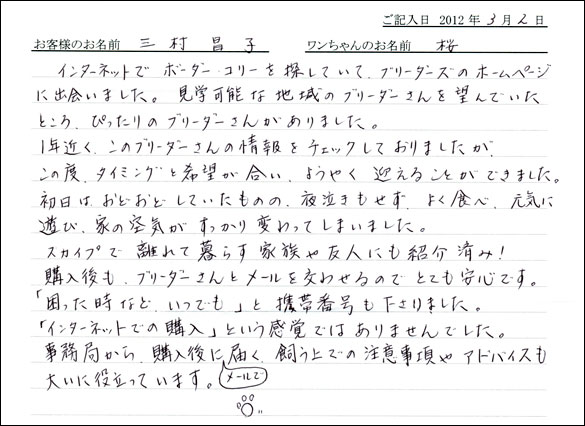 ご記入日 2012年 3月2日
お客様のお名前 三村 昌子 ワンちゃんのお名前 桜
インターネットで ボーダー・コリーを探していて、ブリーダーズのホームページ
に出会いました。見学可能な地域のブリーダーさんを望んでいた
ところ、ぴったりのブリーダーさんがありました。
1年近く、このブリーダーさんの情報をチェックしておりましたが、
この度、タイミングと希望が合い、ようやく迎えることができました。
初日は、おどおどしていたものの、夜泣きもせず、よく食べ、元気に
遊び、家の空気がすっかり変わってしまいました。
スカイプで離れて暮らす家族や友人にも紹介済み!
購入後も、ブリーダーさんとメールを交わせるのでとても安心です。
「困った時など、いつでも」と携帯番号も下さりました。
「インターネットでの購入」という感覚ではありませんでした。
事務局から、購入後に届く、飼う上での注意事項やアドバイスも
メールで
大いに役立っています。